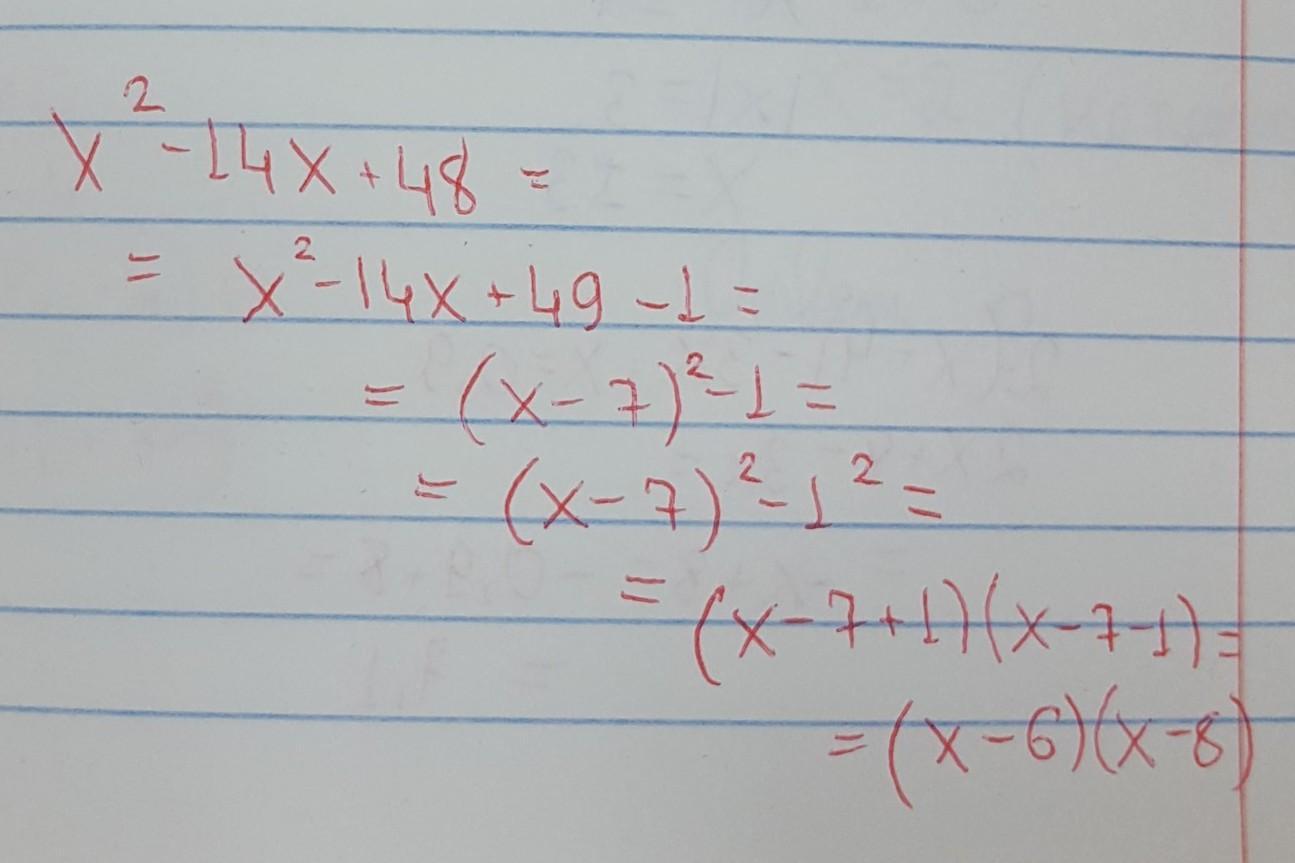 x² - 14x + 48 =
= x² - 14x + 49 - 1 =
= (x - 7)² - 1 =
= (x - 7)² - 1² =
= (x - 7 + 1)(x - 7 - 1) =
= (x - 6)(x - 8)